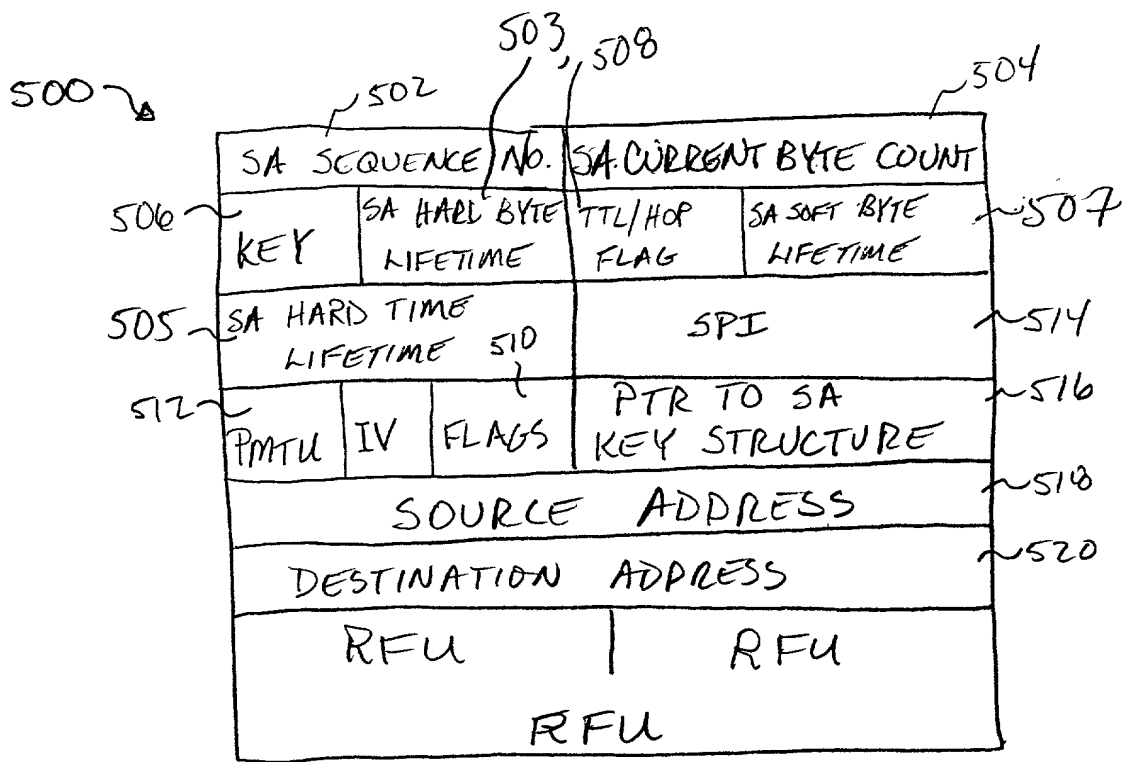 503, 508
500 502 504
SA SEQUENCE NO. SA CURRENT BYTE COUNT
506 KEY SA HARD BYTE LIFETIME TTL/HOP FLAG SA SOFT BYTE LIFETIME 507
505 SA HARD TIME LIFETIME SPI 514
510
512 PMTU IV FLAGS PTR TO SA KEY STRUCTURE 516
SOURCE ADDRESS 518
DESTINATION ADDRESS 520
RFU RFU
RFU